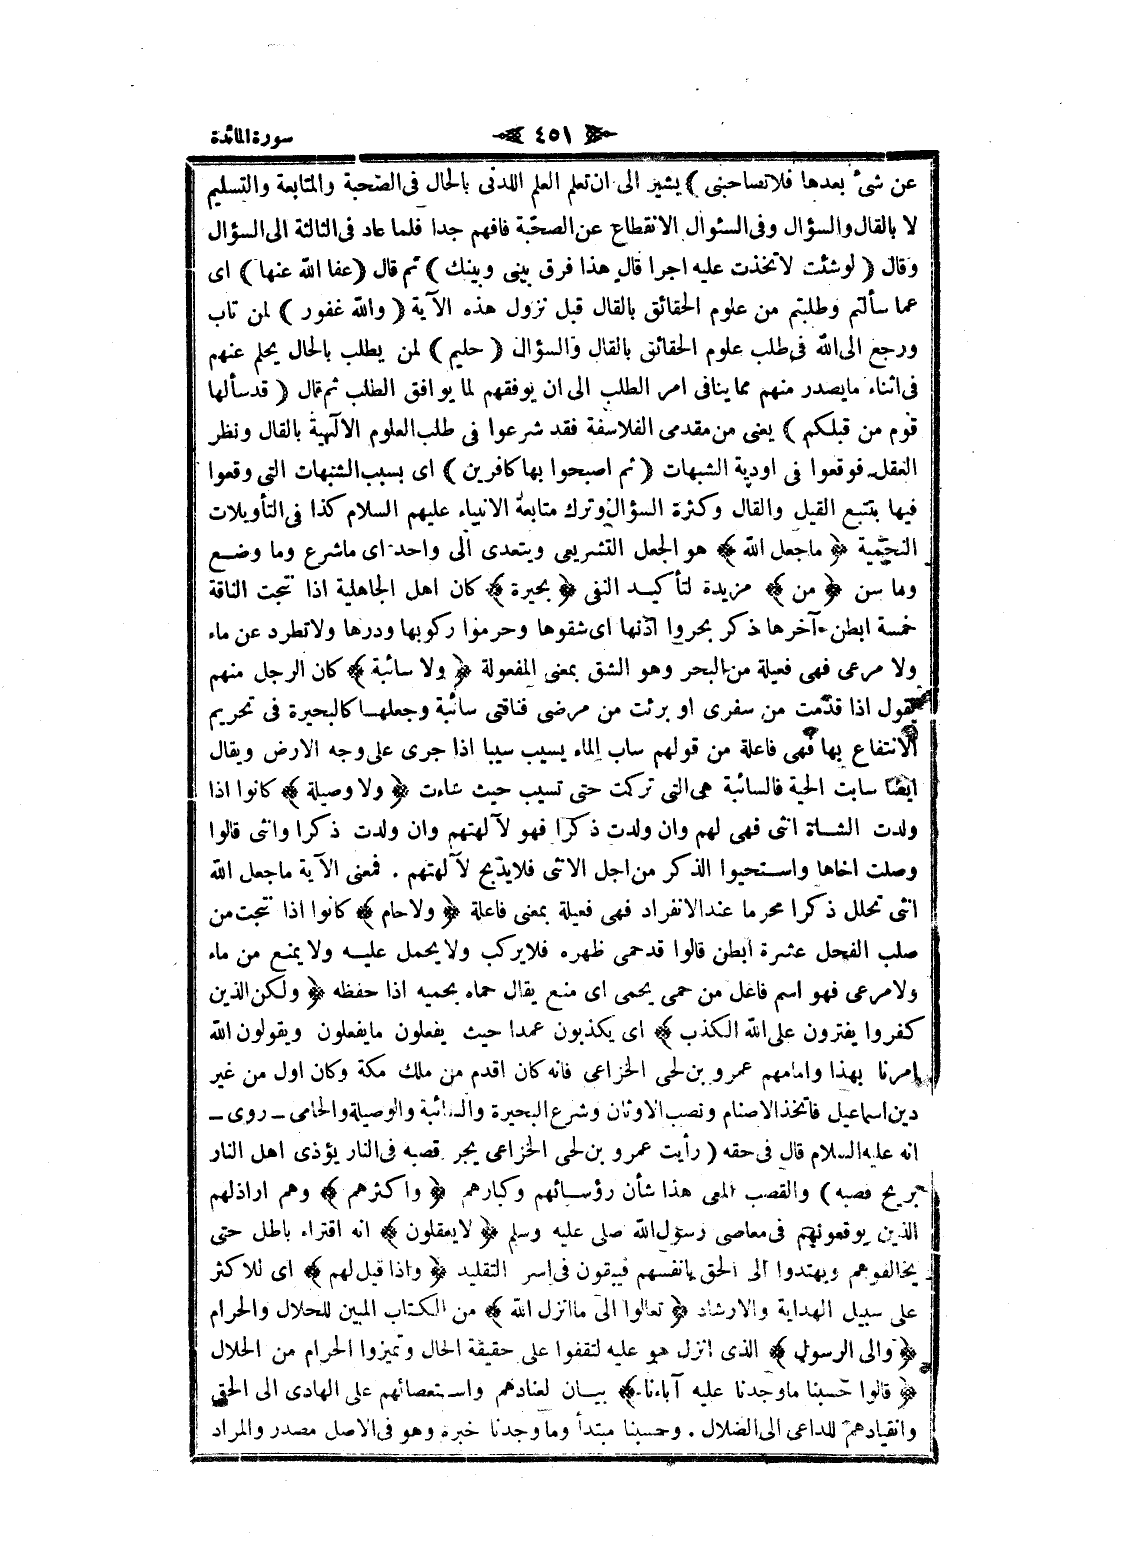 سورة المائدة ﴿ ٤٥١ ﴾
عن شئ بعدها فلا تصاحبنى ) يشير الى ان تعلم العلم اللدنى بالحال فى الصحبة والمتابعة والتسليم
لا بالقال والسؤال وفى السئوال الانقطاع عن الصحبة فافهم جدا فلما عاد فى الثالثة الى السؤال
وقال ( لو شئت لاتخذت عليه اجرا قال هذا فرق بينى وبينك ) ثم قال ( عفا الله عنها ) اى
عما سألتم وطلبتم من علوم الحقائق بالقال قبل نزول هذه الآية ( والله غفور ) لمن تاب
ورجع الى الله فى طلب علوم الحقائق بالقال والسؤال ( حليم ) لمن يطلب بالحال يحلم عنهم
فى اثناء مايصدر منهم مما ينافى امر الطلب الى ان يوفقهم لما يوافق الطلب ثم قال ( قد سألها
قوم من قبلكم ) يعنى من مقدمى الفلاسفة فقد شرعوا فى طلب العلوم الالٓهية بالقال ونظر
العقل فوقعوا فى اودية الشبهات ( ثم اصبحوا بها كافرين ) اى بسبب الشبهات التى وقعوا
فيها بتتبع القيل والقال وكثرة السؤال وترك متابعة الانبياء عليهم السلام كذا فى التأويلات
النجمية ﴿ ماجعل الله ﴾ هو الجعل التشريعى ويتعدى الى واحد اى ماشرع وما وضع
وما سن ﴿ من ﴾ مزيدة لتأكيد النفى ﴿ بحيرة ﴾ كان اهل الجاهلية اذا نتجت الناقة
خمسة ابطن آخرها ذكر بحروا اذنها اى شقوها وحرموا ركوبها ودرها ولاتطرد عن ماء
ولا مرعى فهى فعيلة من البحر وهو الشق بمعنى المفعولة ﴿ ولا سائبة ﴾ كان الرجل منهم
يقول اذا قدمت من سفرى او برئت من مرضى فناقتى سائبة وجعلها كالبحيرة فى تحريم
الانتفاع بها فهى فاعلة من قولهم ساب الماء يسيب سيبا اذا جرى على وجه الارض ويقال
ايضا سابت الحية فالسائبة هى التى تركت حتى تسيب حيث شاءت ﴿ ولا وصيلة ﴾ كانوا اذا
ولدت الشاة انثى فهى لهم وان ولدت ذكرا فهو لآلهتهم وان ولدت ذكرا وانثى قالوا
وصلت اخاها واستحيوا الذكر من اجل الانثى فلايذبح لآلهتهم . فمعنى الآية ماجعل الله
انثى تحلل ذكرا محرما عند الانفراد فهى فعيلة بمعنى فاعلة ﴿ ولا حام ﴾ كانوا اذا نتجت من
صلب الفحل عشرة ابطن قالوا قد حمى ظهره فلايركب ولا يحمل عليه ولا يمنع من ماء
ولا مرعى فهو اسم فاعل من حمى يحمى اى منع يقال حماه يحميه اذا حفظه ﴿ ولكن الذين
كفروا يفترون على الله الكذب ﴾ اى يكذبون عمدا حيث يفعلون مايفعلون ويقولون الله
امرنا بهذا وامامهم عمرو بن لحى الخزاعى فانه كان اقدم من ملك مكة وكان اول من غير
دين اسماعيل فاتخذ الاصنام ونصب الاوثان وشرع البحيرة والسائبة والوصيلة والحامى ـ روى ـ
انه عليه السلام قال فى حقه ( رأيت عمرو بن لحى الخزاعى يجر قصبه فى النار يؤذى اهل النار
بريح قصبه ) والقصب المعى هذا شأن رؤسائهم وكبارهم ﴿ واكثرهم ﴾ وهم اراذلهم
الذين يوقعونهم فى معاصى رسول الله صلى عليه وسلم ﴿ لا يعقلون ﴾ انه افتراء باطل حتى
يخالفوهم ويهتدوا الى الحق بانفسهم فيبقون فى اسر التقليد ﴿ واذا قيل لهم ﴾ اى للاكثر
على سبيل الهداية والارشاد ﴿ تعالوا الى ماانزل الله ﴾ من الكتاب المبين للحلال والحرام
﴿ والى الرسول ﴾ الذى انزل هو عليه لتقفوا على حقيقة الحال وتميزوا الحرام من الحلال
﴿ قالوا حسبنا ماوجدنا عليه آباءنا ﴾ بيان لعنادهم واستعصائهم على الهادى الى الحق
وانقيادهم للداعى الى الضلال . وحسبنا مبتدأ وما وجدنا خبره وهو فى الاصل مصدر والمراد